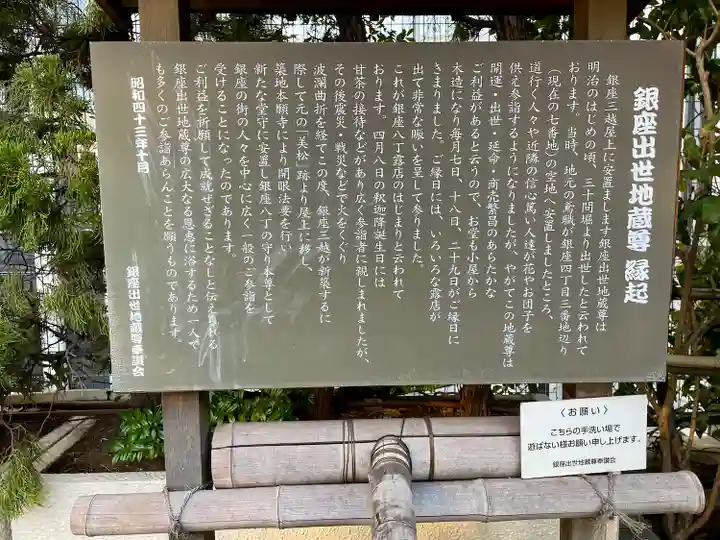 銀座出世地蔵尊 縁起
銀座三越屋上に安置します銀座出世地蔵尊は
明治のはじめの頃、三十間堀より出世したと云われて
おります。当時、地元の鳶職が銀座四丁目三番地辺り
(現在の七番地)の空地へ安置しましたところ、
道行く人々や近隣の信心篤い人達が花やお団子を
供え参詣するようになりましたが、やがてこの地蔵尊は
開運・出世・延命・商売繁昌のあらたかな
ご利益があると云うので、お堂も小屋から
木造になり毎月七日、十八日、二十九日がご縁日に
きまりました。ご縁日には、いろいろな露店が
出て非常な賑いを呈して参りました。
これが銀座八丁露店のはじまりと云われて
おります。四月八日の釈迦降誕生日には
甘茶の接待などがあり広く参詣者に親しまれましたが、
その後震災・戦災などで火をくぐり
波瀾曲折を経てこの度、銀座三越が新築するに
際して元の「美松」跡より屋上に移し、
築地本願寺により開眼法要を行い
新たな堂守に安置し銀座八丁の守り本尊として
銀座の街の人々を中心に広く一般のご参詣を
受けることになったのであります。
ご利益を祈願して成就せざることなしと伝えられる
銀座出世地蔵尊の広大なる恩恵に浴するため一人で
も多くのご参詣あらんことを願うものであります。
昭和四十三年十月
銀座出世地蔵尊奉讃会
〈お願い〉
こちらの手洗い場で
遊ばない様お願い申し上げます。
銀座出世地蔵尊奉讃会